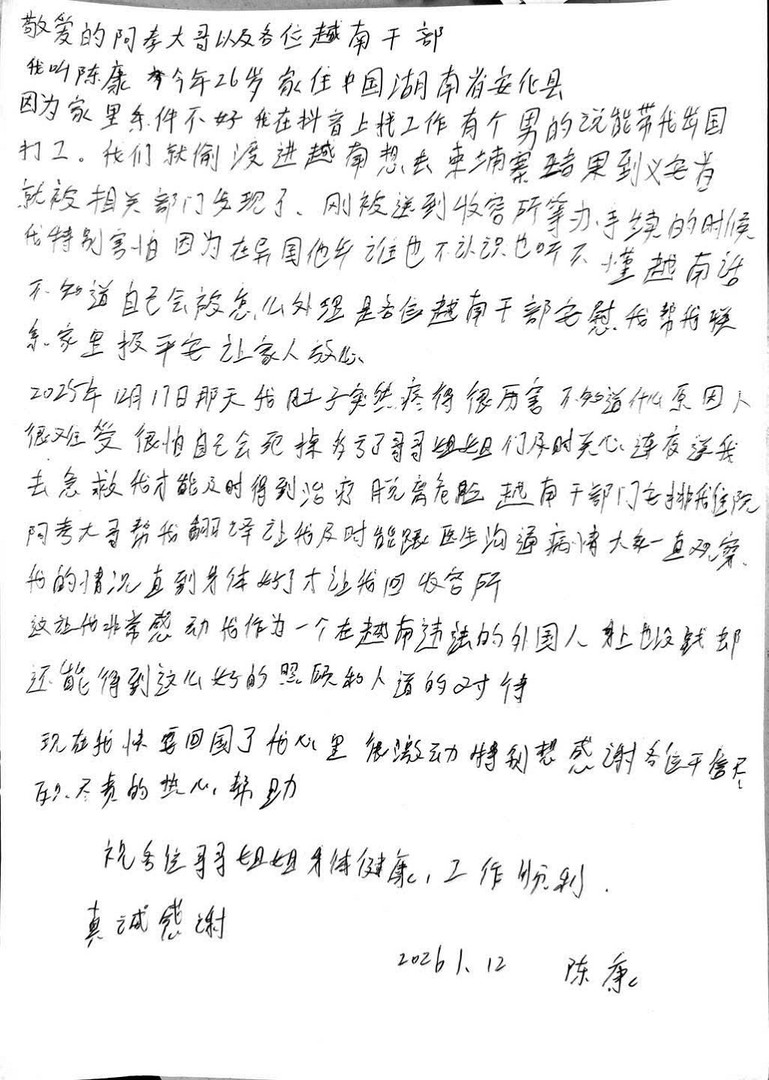 敬爱的阿孝大哥以及各位越南干部
我叫陈康 今年26岁 家住中国湖南省安化县
因为家里条件不好 我在抖音上找工作 有个男的说能带我出国
打工。我们就偷渡进越南想去柬埔寨 结果到义安省
就被相关部门发现了、刚被送到收容所等办手续的时候
我特别害怕 因为在异国他乡 谁也不认识 也听不懂越南话
不知道自己会被怎么处理 是各位越南干部安慰我帮我联
系家里报平安 让家人放心
2025年12月17日那天我肚子突然疼得很厉害 不知道什么原因人
很难受 很怕自己会死掉 多亏了哥哥姐姐们及时关心 连夜送我
去急救我才能及时得到治疗 脱离危险 越南干部们安排我住院
阿孝大哥帮我翻译让我及时能跟医生沟通病情大家一直观察
我的情况直到身体好了才让我回收容所
这让我非常感动 我作为一个在越南违法的外国人 身上也没钱却
还能得到这么好的照顾和人道的对待
现在我快要回国了我心里很激动 特别想感谢各位干警尽
职尽责的热心帮助
祝各位哥哥姐姐身体健康，工作顺利.
真诚感谢
2026.1.12 陈康